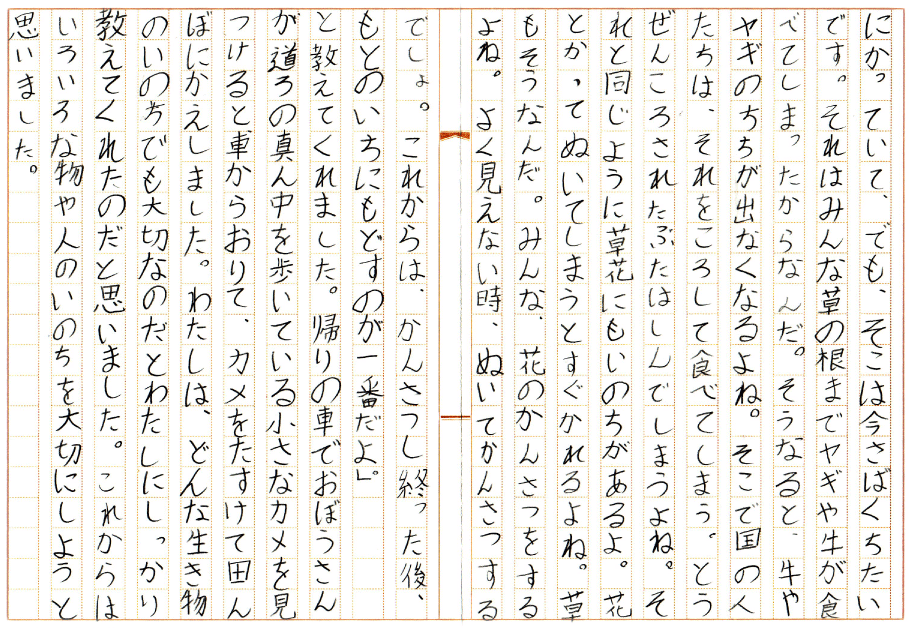 にかっていて、でも、そこは今さばくちたい
です。それはみんな草の根までヤギや牛が食
べてしまったからなんだ。そうなると、牛や
ヤギのちちが出なくなるよね。そこで国の人
たちは、それをころして食べてしまう。とう
ぜんころされたぶたはしんでしまうよね。そ
れと同じように草花にもいのちがあるよ。花
とかってぬいてしまうとすぐかれるよね。草
もそうなんだ。みんな、花のかんさつをする
よね。よく見えない時、ぬいてかんさつする
でしょ。これからは、かんさつし終った後、
もとのいちにもどすのが一番だよ」
と教えてくれました。帰りの車でおぼうさん
が道ろの真ん中を歩いている小さなカメを見
つけると車からおりて、カメをたすけて田ん
ぼにかえしました。わたしは、どんな生き物
のいのちでも大切なのだとわたしにしっかり
教えてくれたのだと思いました。これからは
いろいろな物や人のいのちを大切にしようと
思いました。